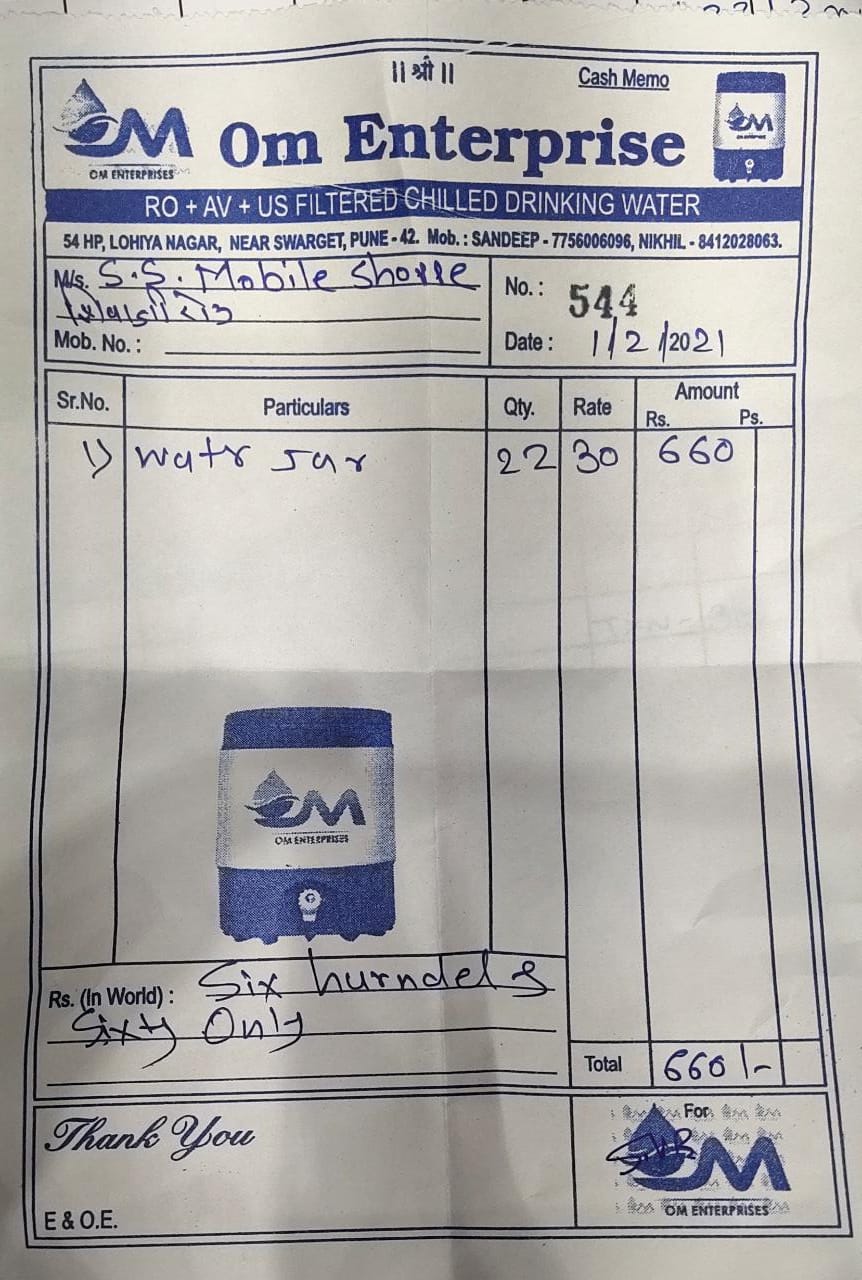 || श्री ||
Cash Memo
OM
OM ENTERPRISES
Om Enterprise
OM
RO + AV + US FILTERED CHILLED DRINKING WATER
54 HP, LOHIYA NAGAR, NEAR SWARGET, PUNE - 42. Mob. : SANDEEP - 7756006096, NIKHIL - 8412028063.
M/s. S.S. Mobile Shoppe
No. : 544
Mob. No. :
Date : 1/2/2021
Sr.No. Particulars Qty. Rate Amount
Rs. Ps.
1) Watr Jar 22 30 660
OM
OM ENTERPRISES
Rs. (In World) : Six hurndel &
Sixty Only
Total 660/-
Thank You
For
OM
OM ENTERPRISES
E & O.E.